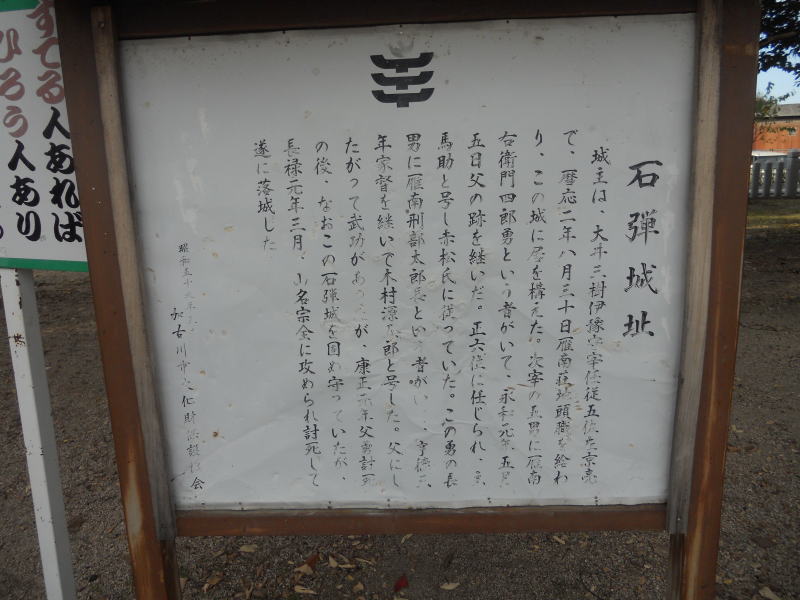 石弾城址
城主は、大井三樹伊豫 宰 従五位左京亮
で、暦応二年八月三十日雁南荘地頭職を給わ
り、この城に居を構えた。次宰の 男に雁南
右衛門四郎勇という者がいて、永和元年五月
五日父の跡を継いだ。正六位に任じられ、
馬助と号し赤松氏に従っていた。この勇の長
男に雁南刑部太郎長という者が 、享徳三
年家督を継いで木村源太郎と号した。父にし
たがって武功があったが、康正元年父勇討死
の後、なおこの石弾城を固め守っていたが、
長禄元年三月、山名宗全に攻められ討死して
遂に落城した
昭和五十 年
加古川市文化財 会
すてる人あれば
ひろう人あり